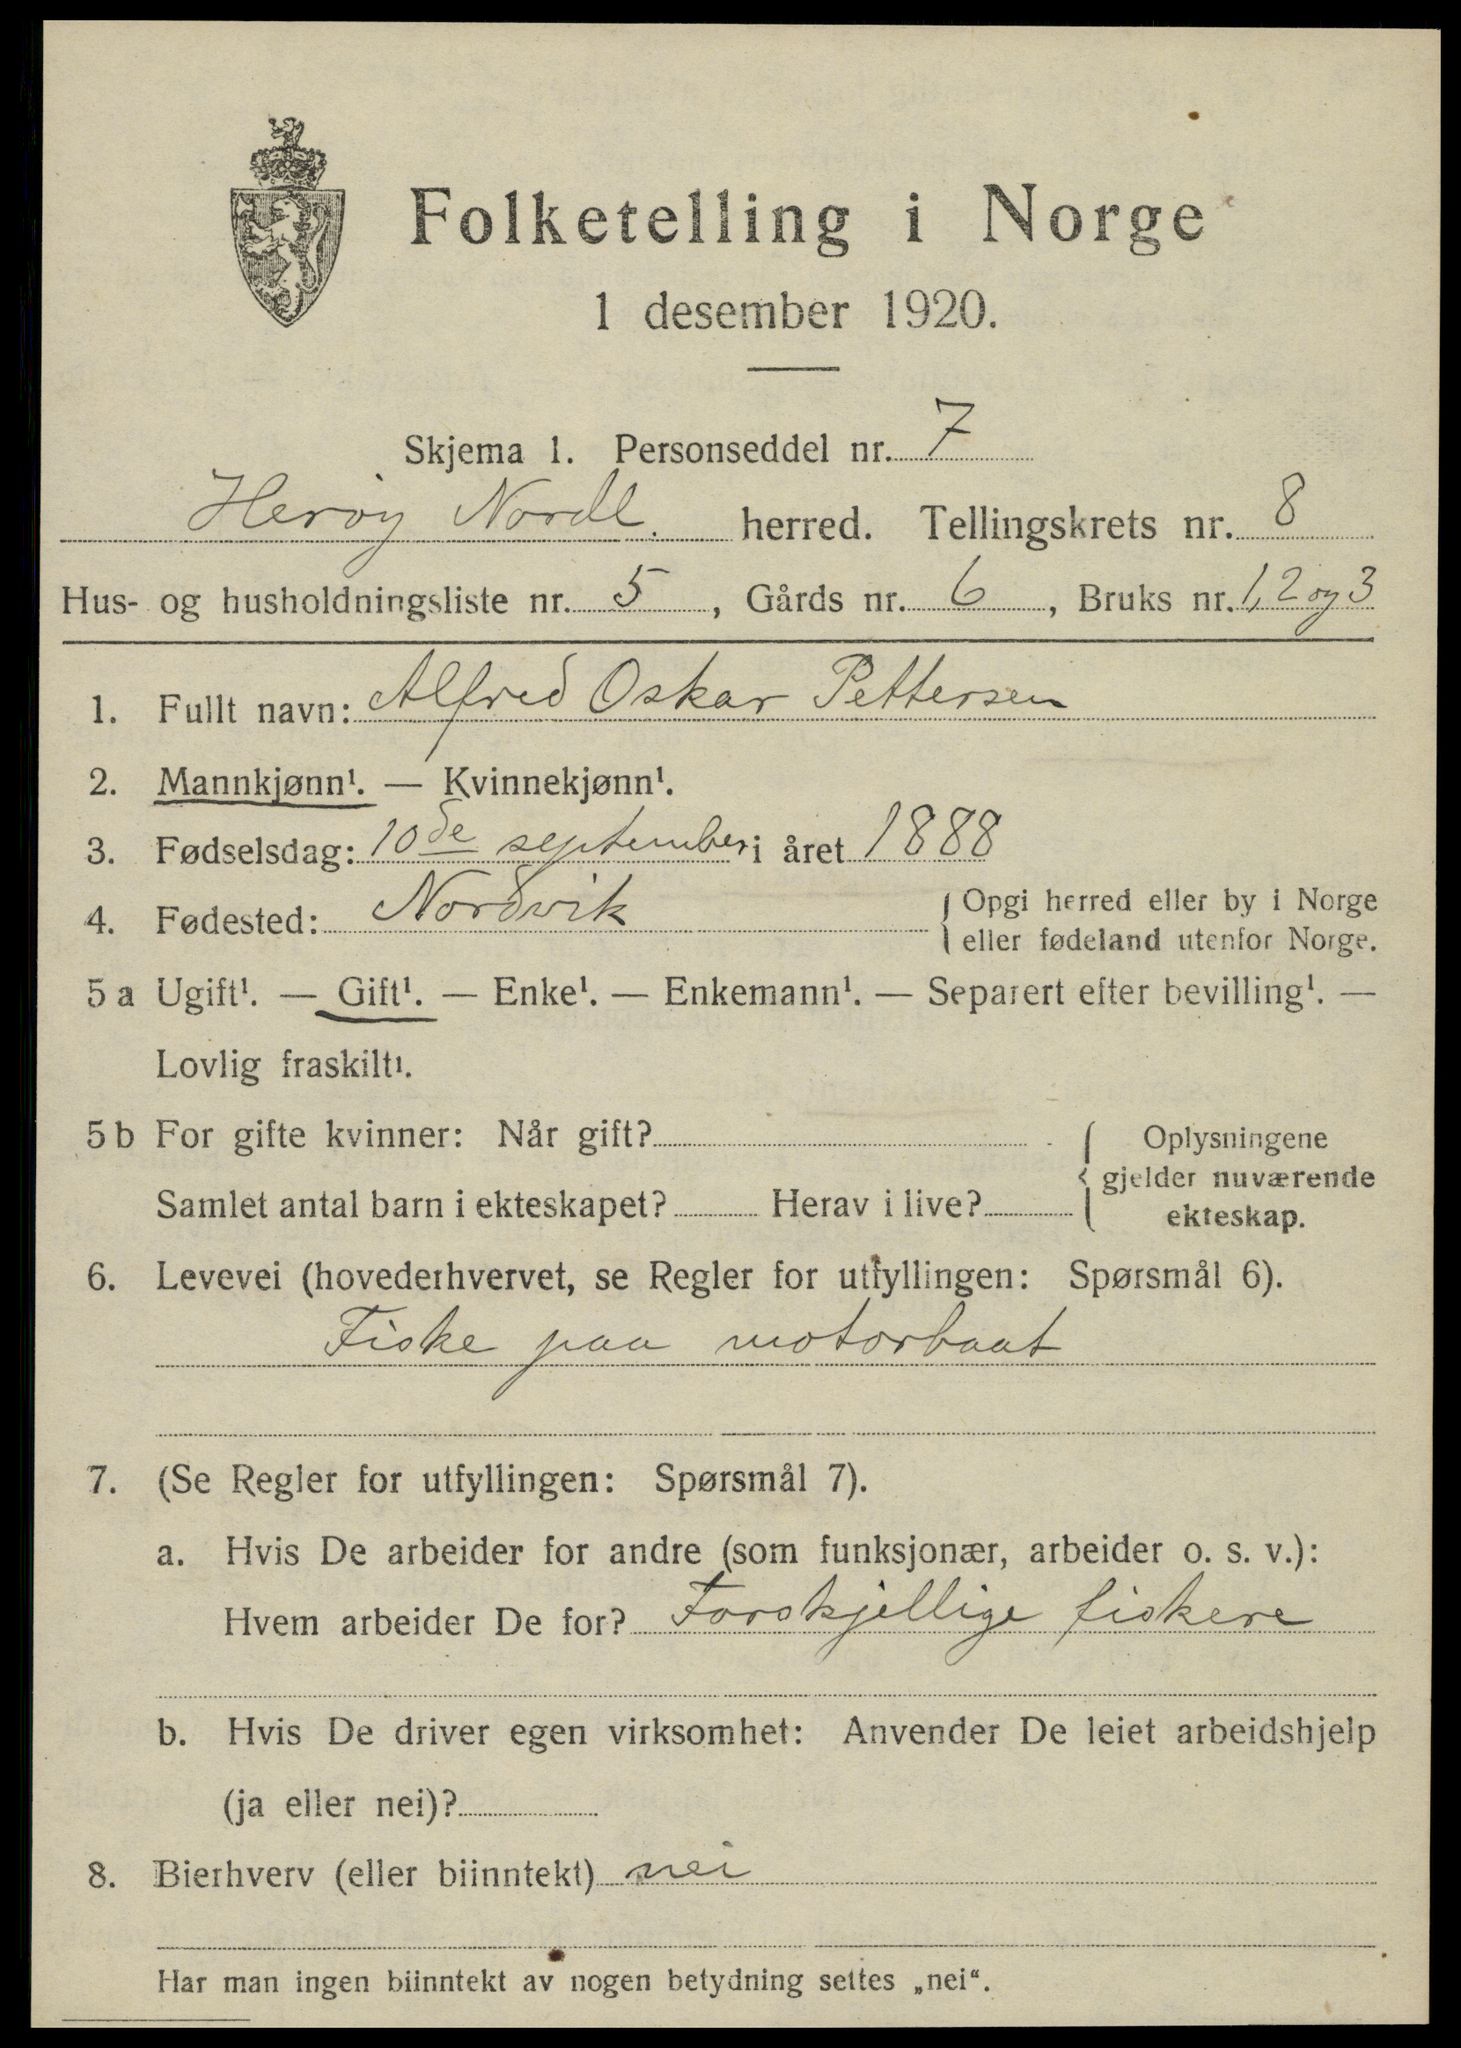 Folketelling i Norge
1 desember 1920.
Skjema 1. Personseddel nr. 7
Herøy Nordl. herred. Tellingskrets nr. 8
Hus- og husholdningsliste nr. 5, Gårds nr. 6, Bruks nr. 1, 2 og 3
1. Fullt navn: Alfred Oskar Pettersen
2. Mannkjønn¹. — Kvinnekjønn¹.
3. Fødselsdag: 10de september i året 1888
4. Fødested: Nordvik { Opgi herred eller by i Norge
eller fødeland utenfor Norge.
5 a Ugift¹. — Gift¹. — Enke¹. — Enkemann¹. — Separert efter bevilling¹. —
Lovlig fraskilt¹.
5 b For gifte kvinner: Når gift? { Oplysningene
gjelder nuværende
Samlet antal barn i ekteskapet? Herav i live? ekteskap.
6. Levevei (hovederhvervet, se Regler for utfyllingen: Spørsmål 6).
Fiske paa motorbaat
7. (Se Regler for utfyllingen: Spørsmål 7).
a. Hvis De arbeider for andre (som funksjonær, arbeider o. s. v.):
Hvem arbeider De for? Forskjellige fiskere
b. Hvis De driver egen virksomhet: Anvender De leiet arbeidshjelp
(ja eller nei)?
8. Bierhverv (eller biinntekt) nei
Har man ingen biinntekt av nogen betydning settes „nei“.